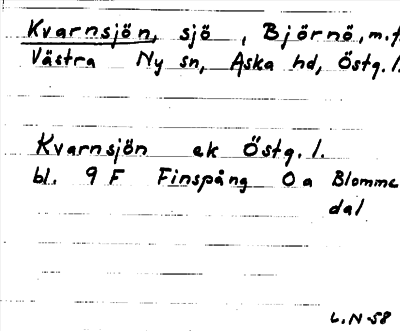 Kvarnsjön, sjö, Björnö, m.fl.
Västra Ny sn, Aska hd, Östg.l.
Kvarnsjön ek Östg.l.
bl. 9 F Finspång 0 a Blomme
dal
L.N-58